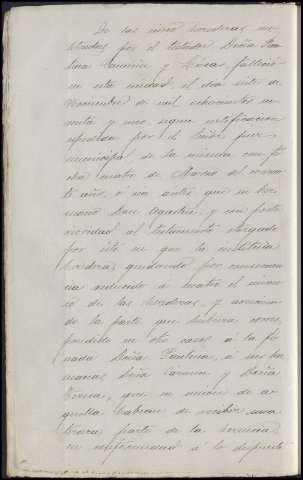 De las cinco herederas ins-
tituidas por el testador Doña Pau-
lina y falleció
en esta ciudad, el día siete de
Noviembre de mil ochocientos no-
venta y uno, segun certificacion
expedida por el Señor Juez
municipal de la misma con fe-
cha cuatro de Marzo del corrien-
te año, ó sea antes que su her-
mano Don Agustin, y con poste-
rioridad al testamento otorgado
por éste en que la instituia
heredera, quedando por consecuen-
cia reducido á cuatro el núme-
ro de las herederas, y acrecien-
do la parte que hubiera corres-
pondido en otro caso, á la fi-
nada Doña Paulina, á sus her-
manas Doña Carmen y Doña
Teresa, que en union de a-
quella habian de recibir una
tercera parte de la herencia
en conformidad á lo dispuesto